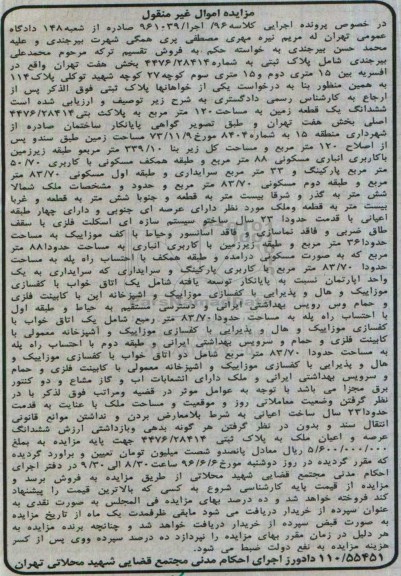 مزایده اموال غیر منقول
در خصوص پرونده اجرایی کلاسه ۹۶/ اجرا/ ۹۶۱۰۳۹ صادره از شعبه ۱۴۸ دادگاه
عمومی تهران له مریم نیره مهری مصطفی پری همگی شهرت بیرجندی و علیه
محمد حسن بیرجندی به خواسته حکم به فروش تقسیم ترکه مرحوم محمدعلی
بیرجندی شامل پلاک ثبتی به شماره ۴۴۷۶/۲۸۴۱۴ بخش هفت تهران واقع در
افسریه بین ۱۵ متری دوم و ۱۵ متری سوم کوچه ۲۷ کوچه شهید توکلی پلاک ۱۱۴
به همین منظور بنا به درخواست یکی از خواهانها پلاک ثبتی فوق الذکر پس از
ارجاع به کارشناس رسمی دادگستری به شرح زیر توصیف و ارزیابی شده است
ششدانگ یک قطعه زمین به مساحت ۱۲۰ متر مربع به پلاک ثبتی ۴۴۷۶/۲۸۴۱۴
اصلی بخش هفت تهران و طبق تصویر گواهی پایانکار ساختمان صادره از
شهرداری منطقه ۱۵ به شماره ۸۴۰۴ مورخ ۷۳/۱۱/۹ مساحت زمین طبق سند و پس
از اصلاح ۱۲۰ متر مربع و مساحت کل زیر بنا ۳۳۹/۱۰ متر مربع طبقه زیرزمین
با کاربری انباری مسکونی ۸۸ متر مربع و طبقه همکف مسکونی با کاربری ۵۰/۷۰
متر مربع پارکینگ و ۳۳ متر مربع سرایداری و طبقه اول مسکونی ۸۳/۷۰ متر
مربع و طبقه دوم مسکونی ۸۳/۷۰ متر مربع و حدود و مشخصات ملک شمالا
شش متر به گذر و شرقا بیست متر به قطعه و جنوبا شش متر به قطعه و غربا
بیست متر به قطعه و ملک مورد نظر دارای عرصه ای جنوبی و دارای چهار طبقه
اعیانی با قدمت حدودا ۲۳ سال ساخت و سیستم سازه ای اسکلت فلزی با سقف
طاق ضربی و فاقد نماسازی و فاقد آسانسور و حیاط با کف موزاییک به مساحت
حدودا ۳۶ متر مربع و طبقه زیرزمین با کاربری انباری به مساحت حدودا ۸۸ متر
مربع که به صورت مسکونی درآمده و طبقه همکف با احتساب راه پله به مساحت
حدودا ۸۳/۷۰ متر مربع با کاربری پارکینگ و سرایداری که سرایداری به یک
واحد آپارتمان نسبت به پایانکار توسعه یافته شامل یک اتاق خواب با کفسازی
موزاییک و هال و پذیرایی با کفسازی موزاییک و آشپزخانه اپن با کابینت فلزی
و حمام و سرویس بهداشتی ایرانی و دسترسی مستقیم به حیاط و طبقه اول
با احتساب راه پله به مساحت حدودا ۸۳/۷۰ متر مربع شامل یک اتاق خواب با
کفسازی موزاییک و هال و پذیرایی با کفسازی موزاییک و آشپزخانه معمولی با
کابینت فلزی و حمام و سرویس بهداشتی ایرانی و طبقه دوم با احتساب راه پله
به مساحت حدودا ۸۳/۷۰ متر مربع شامل دو اتاق خواب با کفسازی موزاییک و
هال و پذیرایی با کفسازی موزاییک و آشپزخانه معمولی با کابینت فلزی و حمام
و سرویس بهداشتی ایرانی و ملک دارای انشعابات آب و گاز مشاع و دو کنتور
برق مجزا می باشد با توجه به عوامل موثر در قضیه و مراتب فوق لذکر با در
نظر گرفتن وضعیت معاملاتی روز و موقعیت و مساحت ملک با عنایت به قدمت
حدودا ۲۳ سال ساخت اعیانی به شرط بلامعارض بودن و نداشتن موانع قانونی
انتقال سند و بدون در نظر گرفتن هر گونه بدهی و بازداشتی ارزش ششدانگ
عرصه و اعیان ملک به پلاک ثبتی ۴۴۷۶/۲۸۴۱۴ جهت پایه مزایده به مبلغ
۵/۶۰۰/۰۰۰/۰۰۰ ریال معادل پانصد و شصت میلیون تومان تعیین و برآورد گردیده
که مقرر گردیده در روز دوشنبه مورخ ۹۶/۶/۶ ساعت ۸/۳۰ الی ۹/۳۰ در دفتر اجرای
احکام مدنی مجتمع قضایی شهید محلاتی از طریق مزایده به فروش برسد و
مزایده از قیمت پایه کارشناسی شروع به کسی که بالاترین قیمت را پیشنهاد
کند فروخته خواهد شد و ده درصد بهای مزایده فی المجلس به صورت نقدی به
عنوان سپرده از خریدار دریافت می شود مابقی ظرف مدت یک ماه از تاریخ مزایده
به صورت قبض سپرده از خریدار دریافت خواهد شد و چنانچه برنده مزایده به
هر دلیل در زمان مقرر بهای مزایده را نپردازد ده درصد سپرده ووی پس از کسر
هزینه مزایده به نفع دولت ضبط می شود.
۱۱۰/۵۵۴۵۱ دادورز اجرای احکام مدنی مجتمع قضایی شهید محلاتی تهران